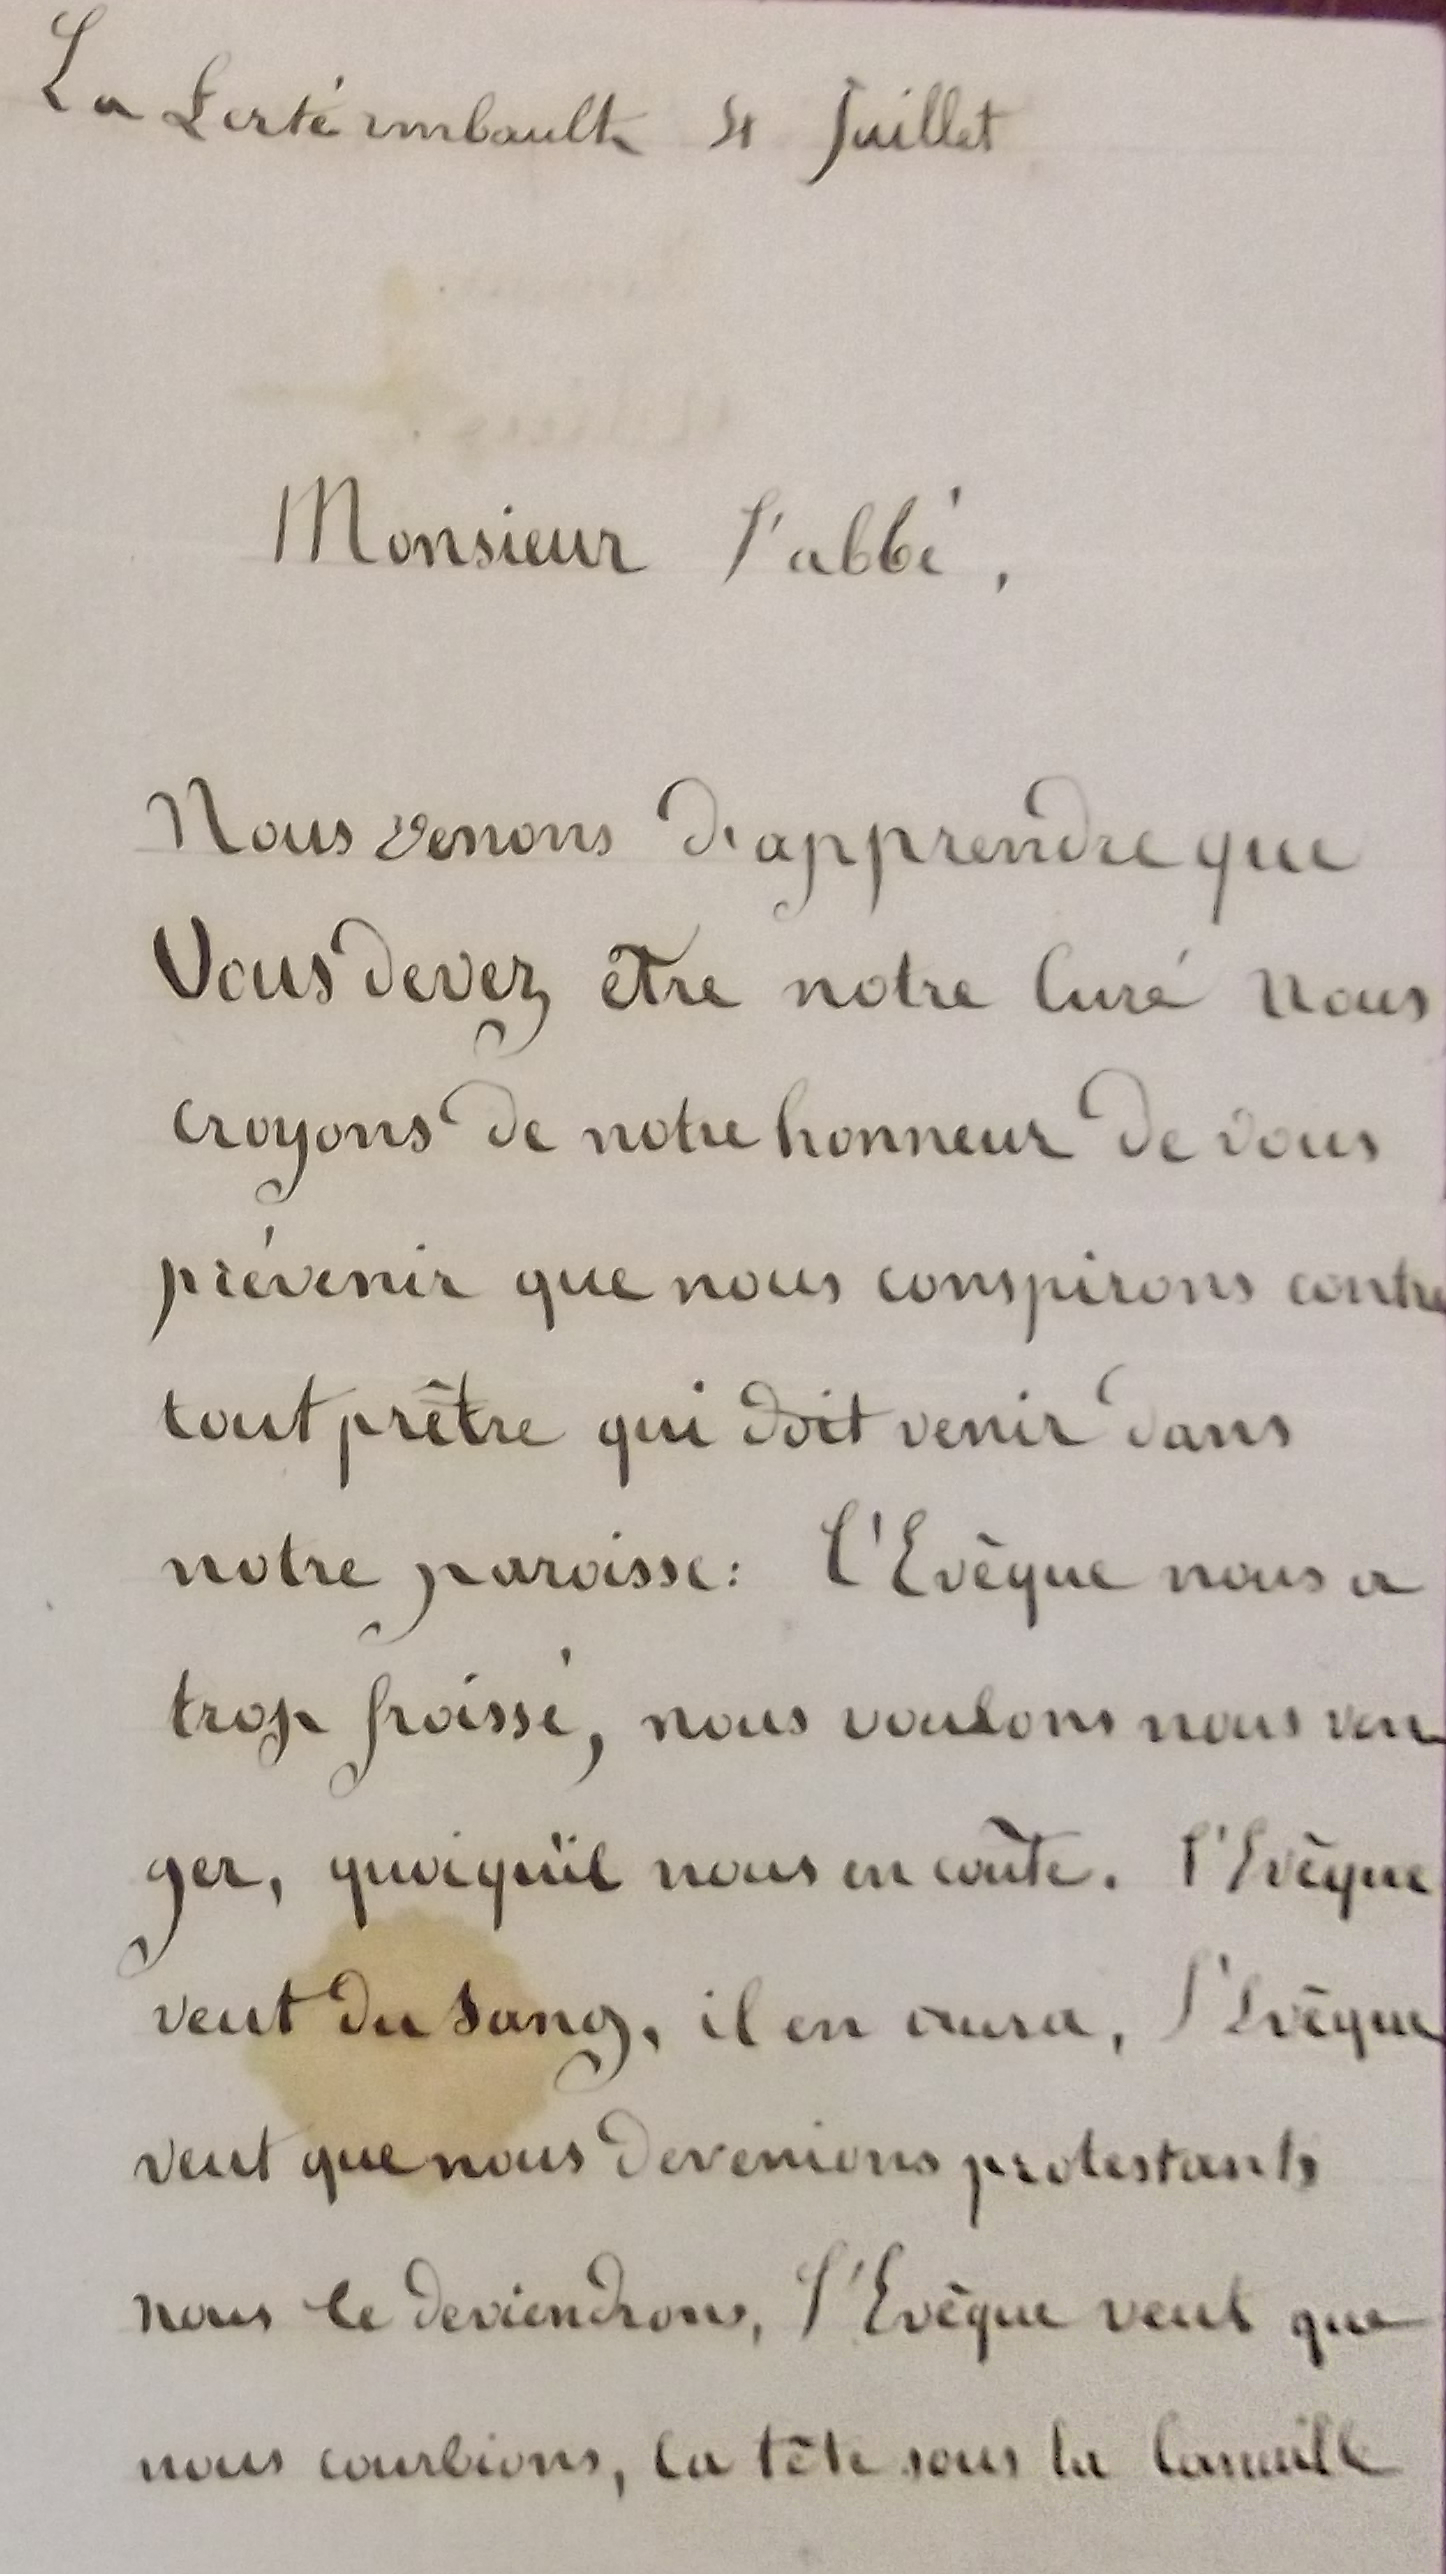 La Ferté imbault 4 Juillet
Monsieur l'abbé,
Nous venons d'apprendre que
Vous devez être notre Curé Nous
croyons de notre honneur de vous
prévenir que nous conspirons contre
tout prêtre qui doit venir dans
notre paroisse: l'Evêque nous a
trop froissé, nous voulons nous ven
ger, quoiqu'il nous en coûte. l'Evêque
veut du sang, il en aura, l'Evêque
veut que nous devenions protestants
nous le deviendrons, l'Evêque veut que
nous courbions, la tête sous la